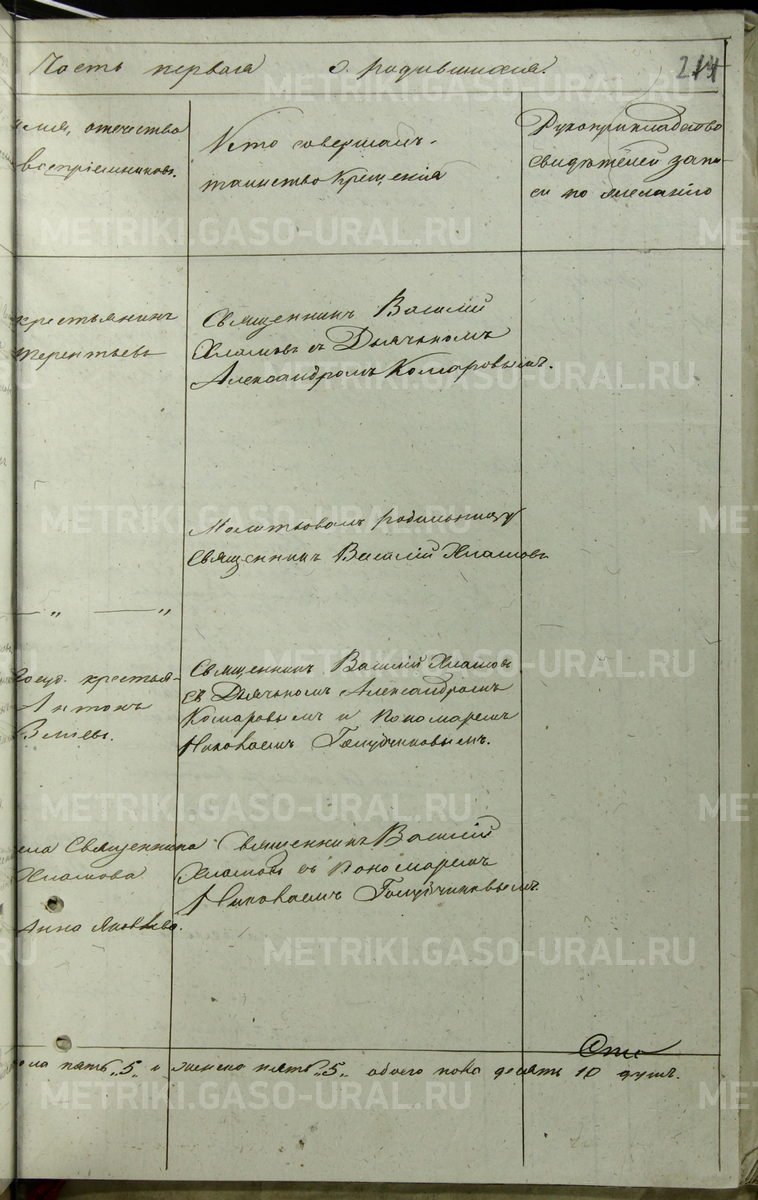 Часть первая о родившихся. 214
имя, отечество
воспріемниковъ.
Кто совершалъ
таинство Крещенія
Рукоприкладство
свидѣтелей запи-
си по желанію
крестьянинъ
Терентьевъ
Священникъ Василій
Хламовъ съ Дьячкомъ
Александромъ Комаровымъ.
Молитвовалъ родильницу
Священникъ Василій Хламовъ
— „ — „
Госуд. крестья-
Антонъ
Священникъ Василій Хламовъ
съ Дьячкомъ Александромъ
Комаровымъ и Пономаремъ
Николаемъ Голубчиковымъ.
Священника
Хламова
Анна Яковлева.
Священникъ Василій
Хламовъ съ Пономаремъ
Николаемъ Голубчиковымъ.
пола пять „5„ и женска пять „5„ обоего пола десять 10 душъ.
METRIKI.GASO-URAL.RU